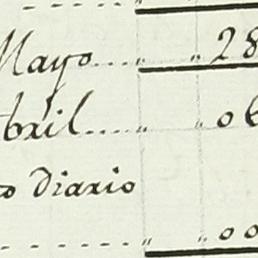 Mayo.... „ „ 28
bril..... „ „ 06
to diario
- - - - - - - „ „ 00